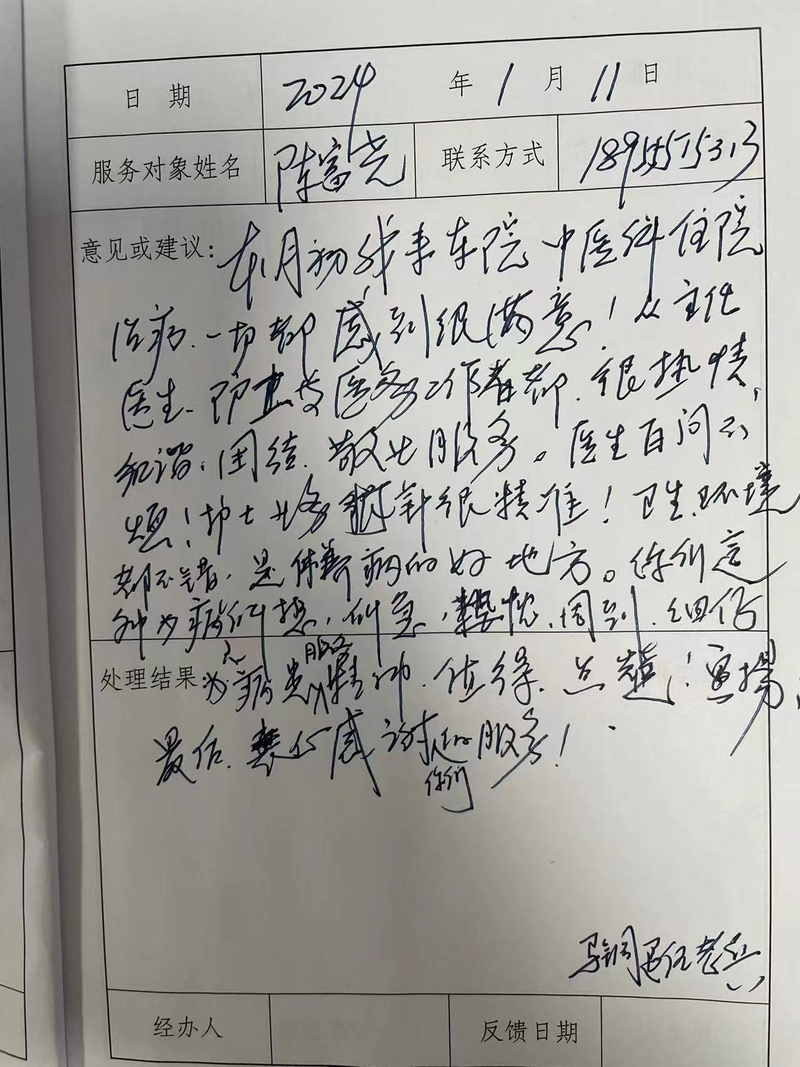 日 期 2024 年 1 月 11 日
服务对象姓名 陈富尧 联系方式
意见或建议: 本月初我来本院中医科住院
治病、一切都感到很满意！从主任
医生、护士与医务工作者都、很热情、
和谐、团结、敬业服务。医生百问不
烦！护士业务打针很精准！卫生环境
都不错，是休养病的好地方。你们这
种为病人们想，们急，热忱、周到、细仔
处理结果: 为病患服务精神、值得、点赞！宣扬
最后、衷心感谢你们的服务！
退伍老兵
经办人 反馈日期